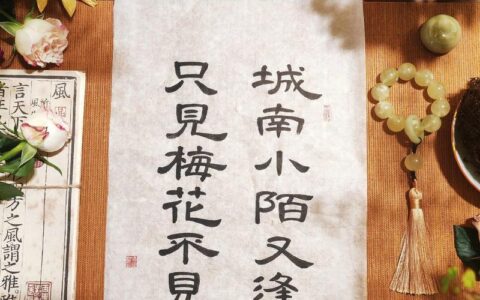 城南小陌又逢
只見梅花不見
風
言天下
方之風謂之雅